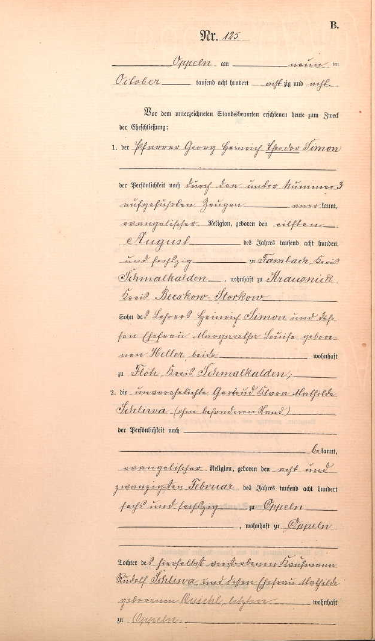 B.
Nr. 125
Oppeln am neun ten
October tausend acht hundert acht zig und acht
Vor dem unterzeichneten Standesbeamten erschienen heute zum Zweck
der Eheschließung:
1. der Pfarrer Georg Heinrich Theodor Simon
der Persönlichkeit nach durch den unter Nummer 3
aufgeführten Zeugen aner kannt,
evangelischer Religion, geboren den elften
August des Jahres tausend acht hundert
und sechzig zu Tambach Kreis
Schmalkalden, wohnhaft zu Krausnick
Kreis Beeskow Storkow
Sohn des Lehrers Heinrich Simon und des-
sen Ehefrau Margarethe Louise gebore-
nen Heller beide wohnhaft
zu Floh Kreis Schmalkalden,
2. die unverehelichte Gertrud Clara Mathilde
Schlerva (ohne besonderen Stand)
der Persönlichkeit nach
bekannt,
evangelischer Religion, geboren den acht und
zwanzigsten Februar des Jahres tausend acht hundert
sechs und sechzig zu Oppeln
, wohnhaft zu Oppeln
Tochter des hierselbst verstorbenen Kaufmann
Rudolf Schlerva und dessen Ehefrau Mathilde
geborenen letztere wohnhaft
zu Oppeln